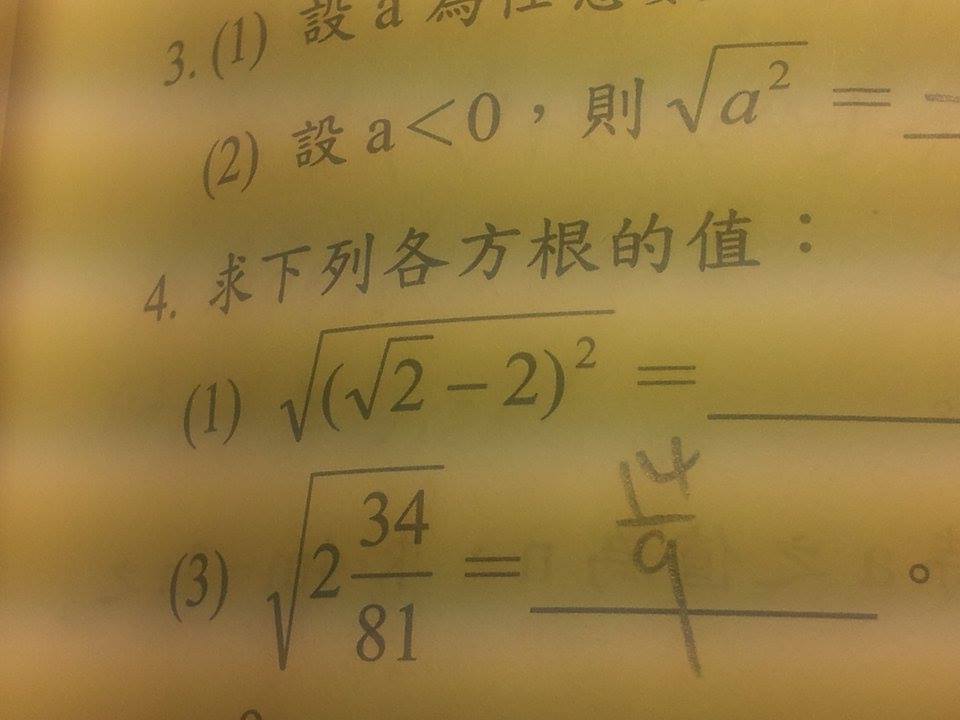 3. (1) 設 a 為任意
(2) 設 a<0，則 √a² =
4. 求下列各方根的值：
(1) √(√2 − 2)² =
(3) √2 34/81 = 14/9 。